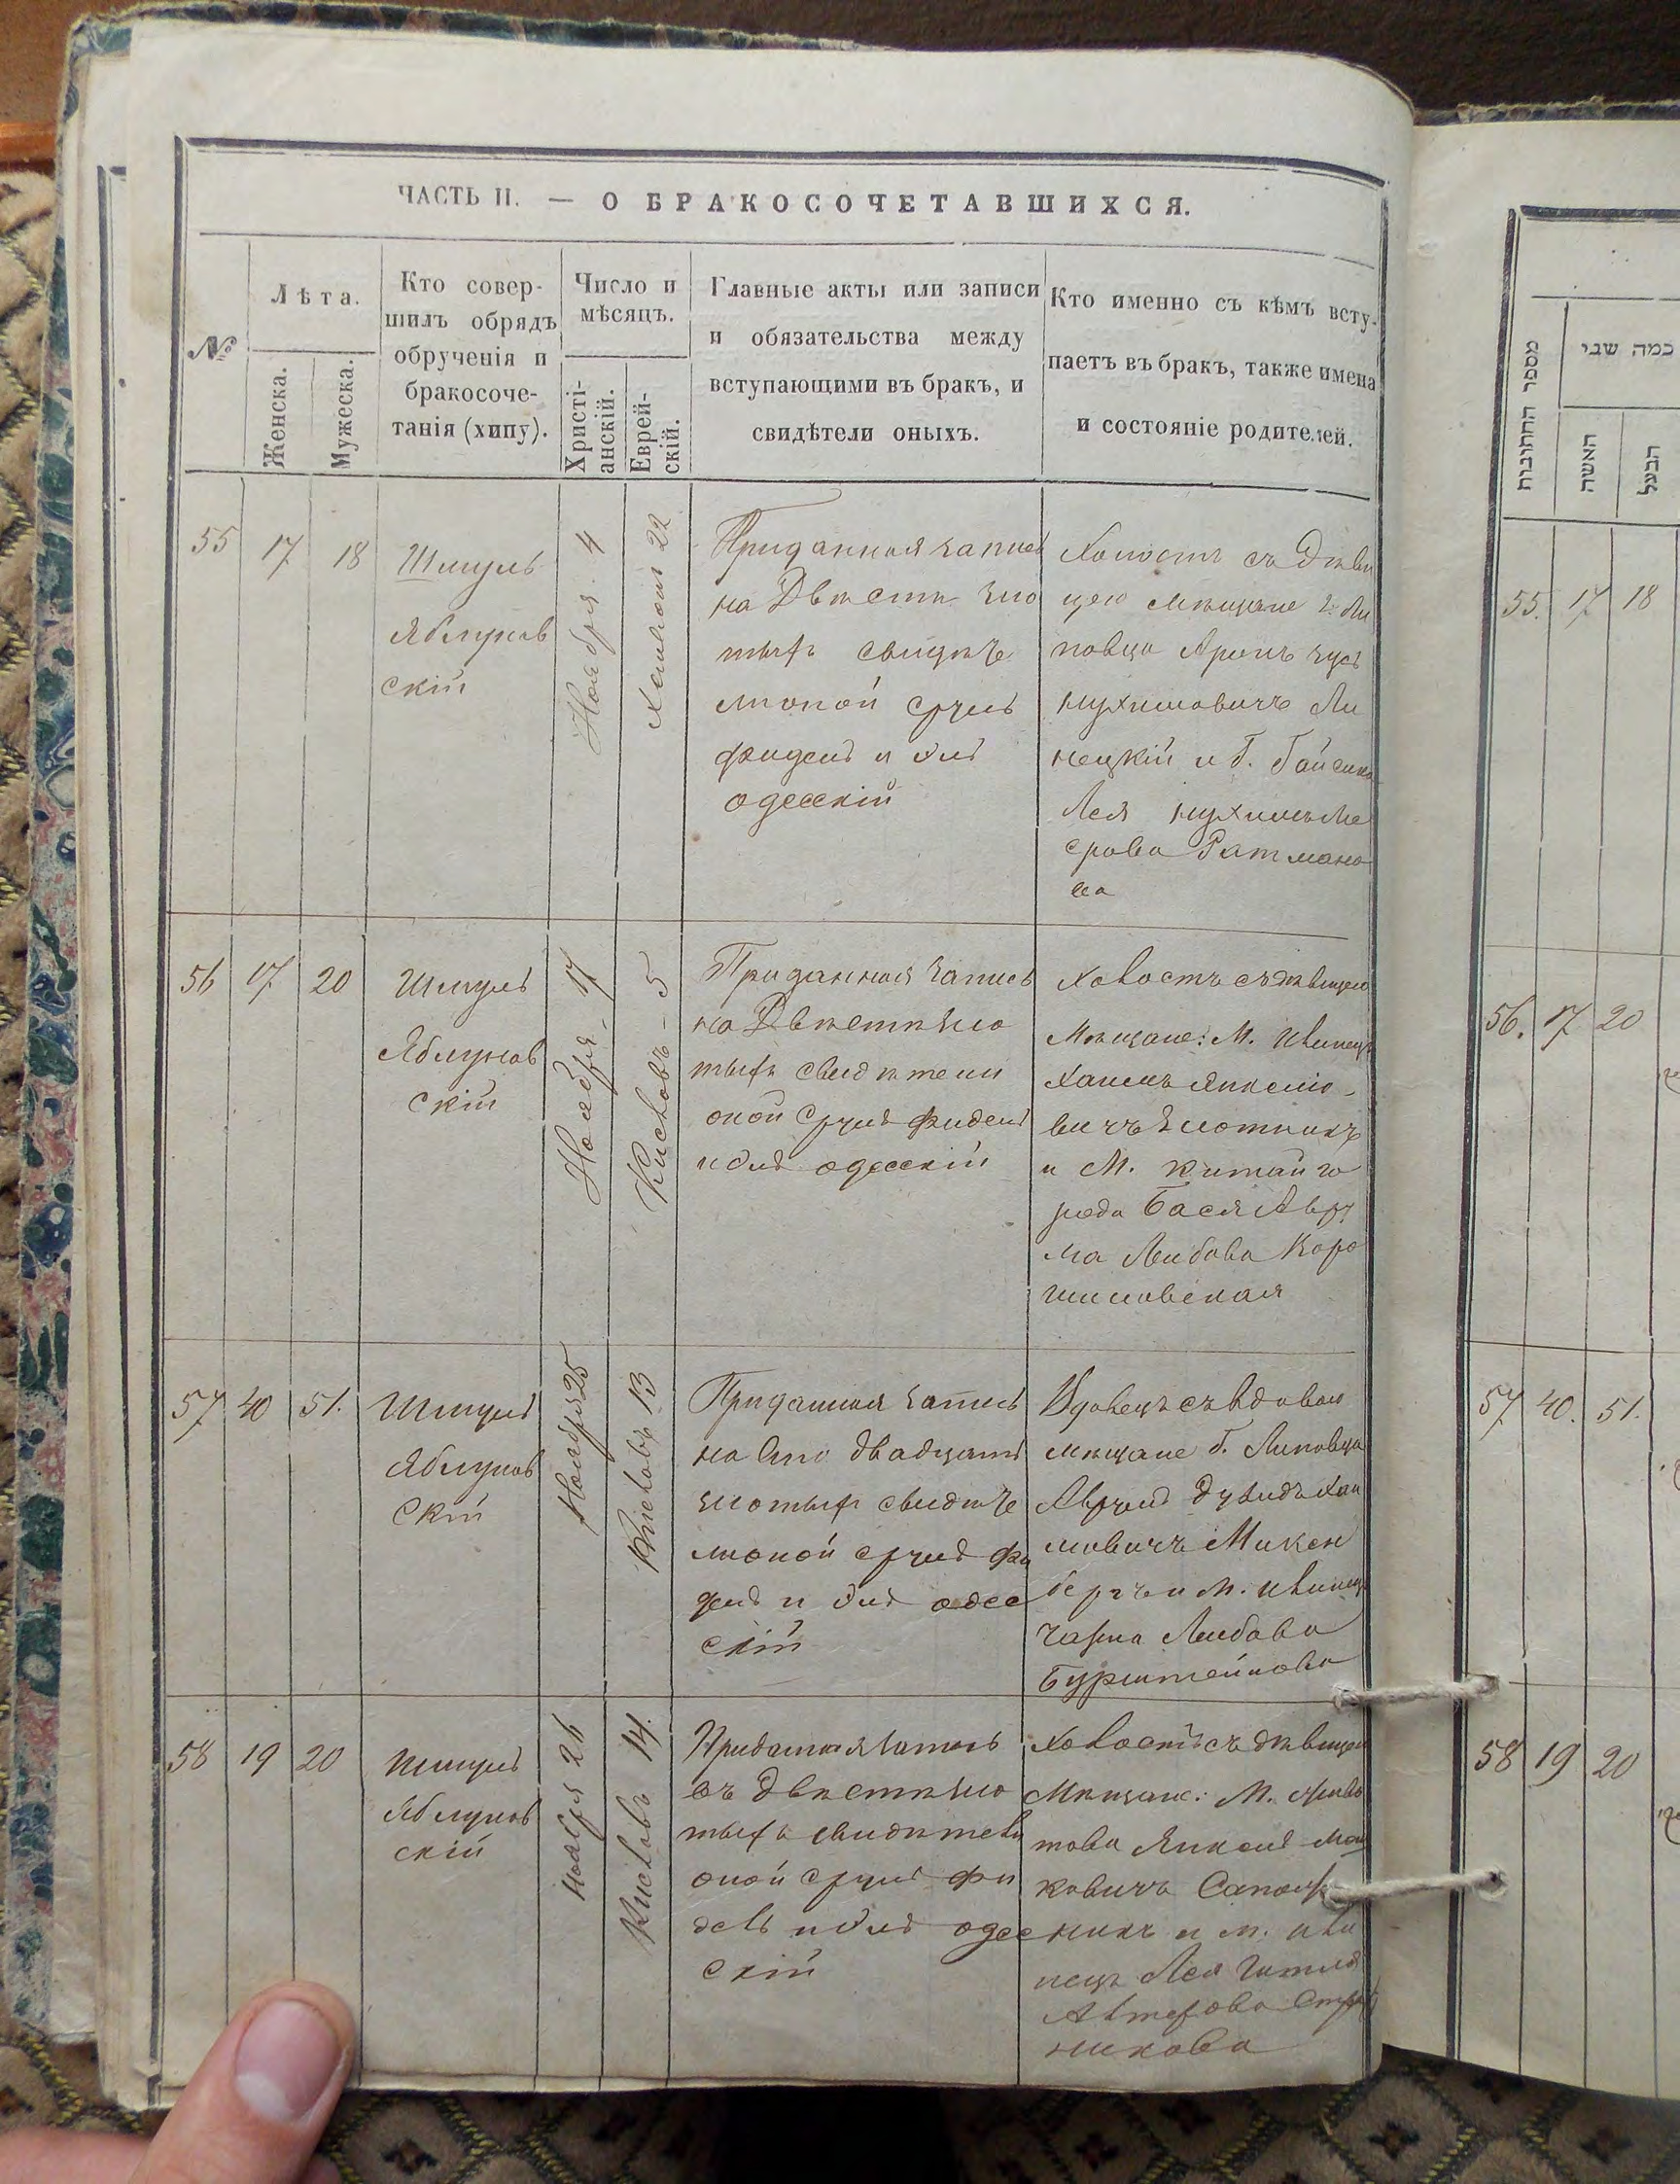 ЧАСТЬ II. — О БРАКОСОЧЕТАВШИХСЯ.
№
Лѣта.
Женска.
Мужеска.
Кто совер-
шилъ обрядъ
обрученія и
бракосоче-
танія (хипу).
Число и
мѣсяцъ.
Христі-
анскій.
Еврей-
скій.
Главные акты или записи
и обязательства между
вступающими въ бракъ, и
свидѣтели оныхъ.
Кто именно съ кѣмъ всту-
паетъ въ бракъ, также имена
и состояніе родителей.
55
17
18
Шмуль
Яблунов
скій
Ноября 4
22
Приданная запись
на Двѣсти зло
тыхъ свидѣте
ли оной Сруль
фидель и
одесскій
Холостъ съ Дѣви
цею мѣщане г. Ли
повца Аронъ
нухимовичъ Ли
нецкій и г. Гайсина
Лея нухимъ Ме
ерова Ратмано
ва
56
17
20
Шмуль
Яблунов
скій
Ноября 17
Кислевъ 5
Приданная запись
на Двѣсти зло
тыхъ свидѣтели
оной Сруль фидель
и одесскій
Холостъ съ дѣвицею
Мѣщане: М. Ивинецъ
Хаимъ Янкелио-
вичъ Злотникъ
и М. Китайго
рода Бася Авру
ма Лейбова Коро
57
40
51.
Шмуль
Яблунов
скій
Ноября 25
Кислевъ 13
Приданная запись
на Сто двадцать
злотыхъ свидѣте
ли оной сруль фи
дель и одес
скій
Вдовецъ съ вдовою
мѣщане г. Липовца
Аврумъ Дувидъ Хаи
мовичъ
бергъ и М. Ивинецъ
Чарна Лейбова
Бурштейнова
58
19
20
Шмуль
Яблунов
скій
Ноября 26
Кислевъ 14.
Приданная запись
въ двѣсти зло
тыхъ свидѣтели
оной сруль фи
дель и одес
скій
Холостъ съ дѣвицею
Мѣщане: М.
това Янкель Мош
ковичъ Сапож
никъ и м. Иви
нецъ Лея Гитля
никова
מספר החתונות
כמה שני
האשה
הבעל
55. 17 18
56. 17 20
57 40. 51.
58 19 20